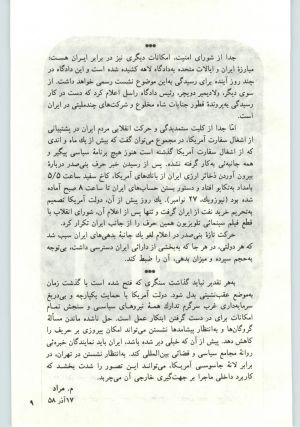 ***
جدا از شورای امنیت، امکانات دیگری نیز در برابر ایران هست؛
مبارزهٔ ایران و ایالات متحده به‌دادگاه لاهه کشیده شده است و این دادگاه در
چند روز آینده برای رسیدگی به‌این موضوع نشست رسمی خواهد داشت. از
سوی دیگر، ولادیمیر دویچر، رئیس دادگاه راسل اعلام کرد که دست در کار
رسیدگی به‌پروندهٔ قطور جنایات شاه مخلوع و شرکت‌های چندملیتی در ایران
است.
امّا جدا از کلیت ستمدیدگی و حرکت انقلابی مردم ایران در پشتیبانی
از اشغال سفارت آمریکا، در مجموع می‌توان گفت که بیش از یک ماه و اندی
از اشغال سفارت آمریکا گذشته است هنوز هیچ برنامهٔ سیاسی پیگیر و
همه جانبه‌ئی به‌کار گرفته نشده. پس از رسیدن خبر حرف بنی‌صدر در باره
بیرون آوردن ذخائر ارزی ایران از بانک‌های آمریکا، کاخ سفید ساعت ۵/۵
بامداد به‌تکاپو افتاد و دستور بستن حساب‌های ایران تا ساعت ۸ صبح آماده
شده بود (نیوزویک، ۲۷ نوامبر). یک روز پیش از آن، دولت آمریکا تصمیم
به‌تحریم خرید نفت از ایران گرفت و تنها پس از اعلام آن، شورای انقلاب با
قطع فیلم سینمائی تلویزیون همین حرف را از جانب ایران تکرار کرد.
حرکت تازهٔ بنی‌صدر در اعلام لغو یک جانبهٔ بدهی‌های ایران سبب شد
که هر دولتی، در هر جا که به‌بخشی از دارائی ایران دسترسی داشت، بی‌توجه
به‌حجم سپرده و میزان بدهی، آن را ضبط کند.
***
به‌هر تقدیر نباید گذاشت سنگری که فتح شده است با گذشت زمان
به‌موضع عقب‌نشینی بدل شود. دولت آمریکا با حمایت یکپارچه و بی‌دریغ
سرمایه‌داری غرب سرگرم تدارک همهٔ نیروهای سیاسی و سنجش تمام
امکانات برای در دست گرفتن ابتکار عمل است. حل نشده ماندن مسألهٔ
گروگان‌ها و به‌انتظار پیشامدها نشستن می‌تواند امکان پیروزی بر حریف را
کاهش دهد. پیش از آن که خیلی دیر شده باشد، ایران باید نمایندگان خبره‌ئی
روانهٔ مجامع سیاسی و قضائی بین‌المللی کند. به‌انتظار نشستن در تهران، در
برابر لانهٔ جاسوسی آمریکا، می‌تواند این تصور را شدت بخشد که
کاربرد داخلی ماجرا بر جهت‌گیری خارجی آن می‌چربد.
م. مراد
۱۷ آذر ۵۸
۹